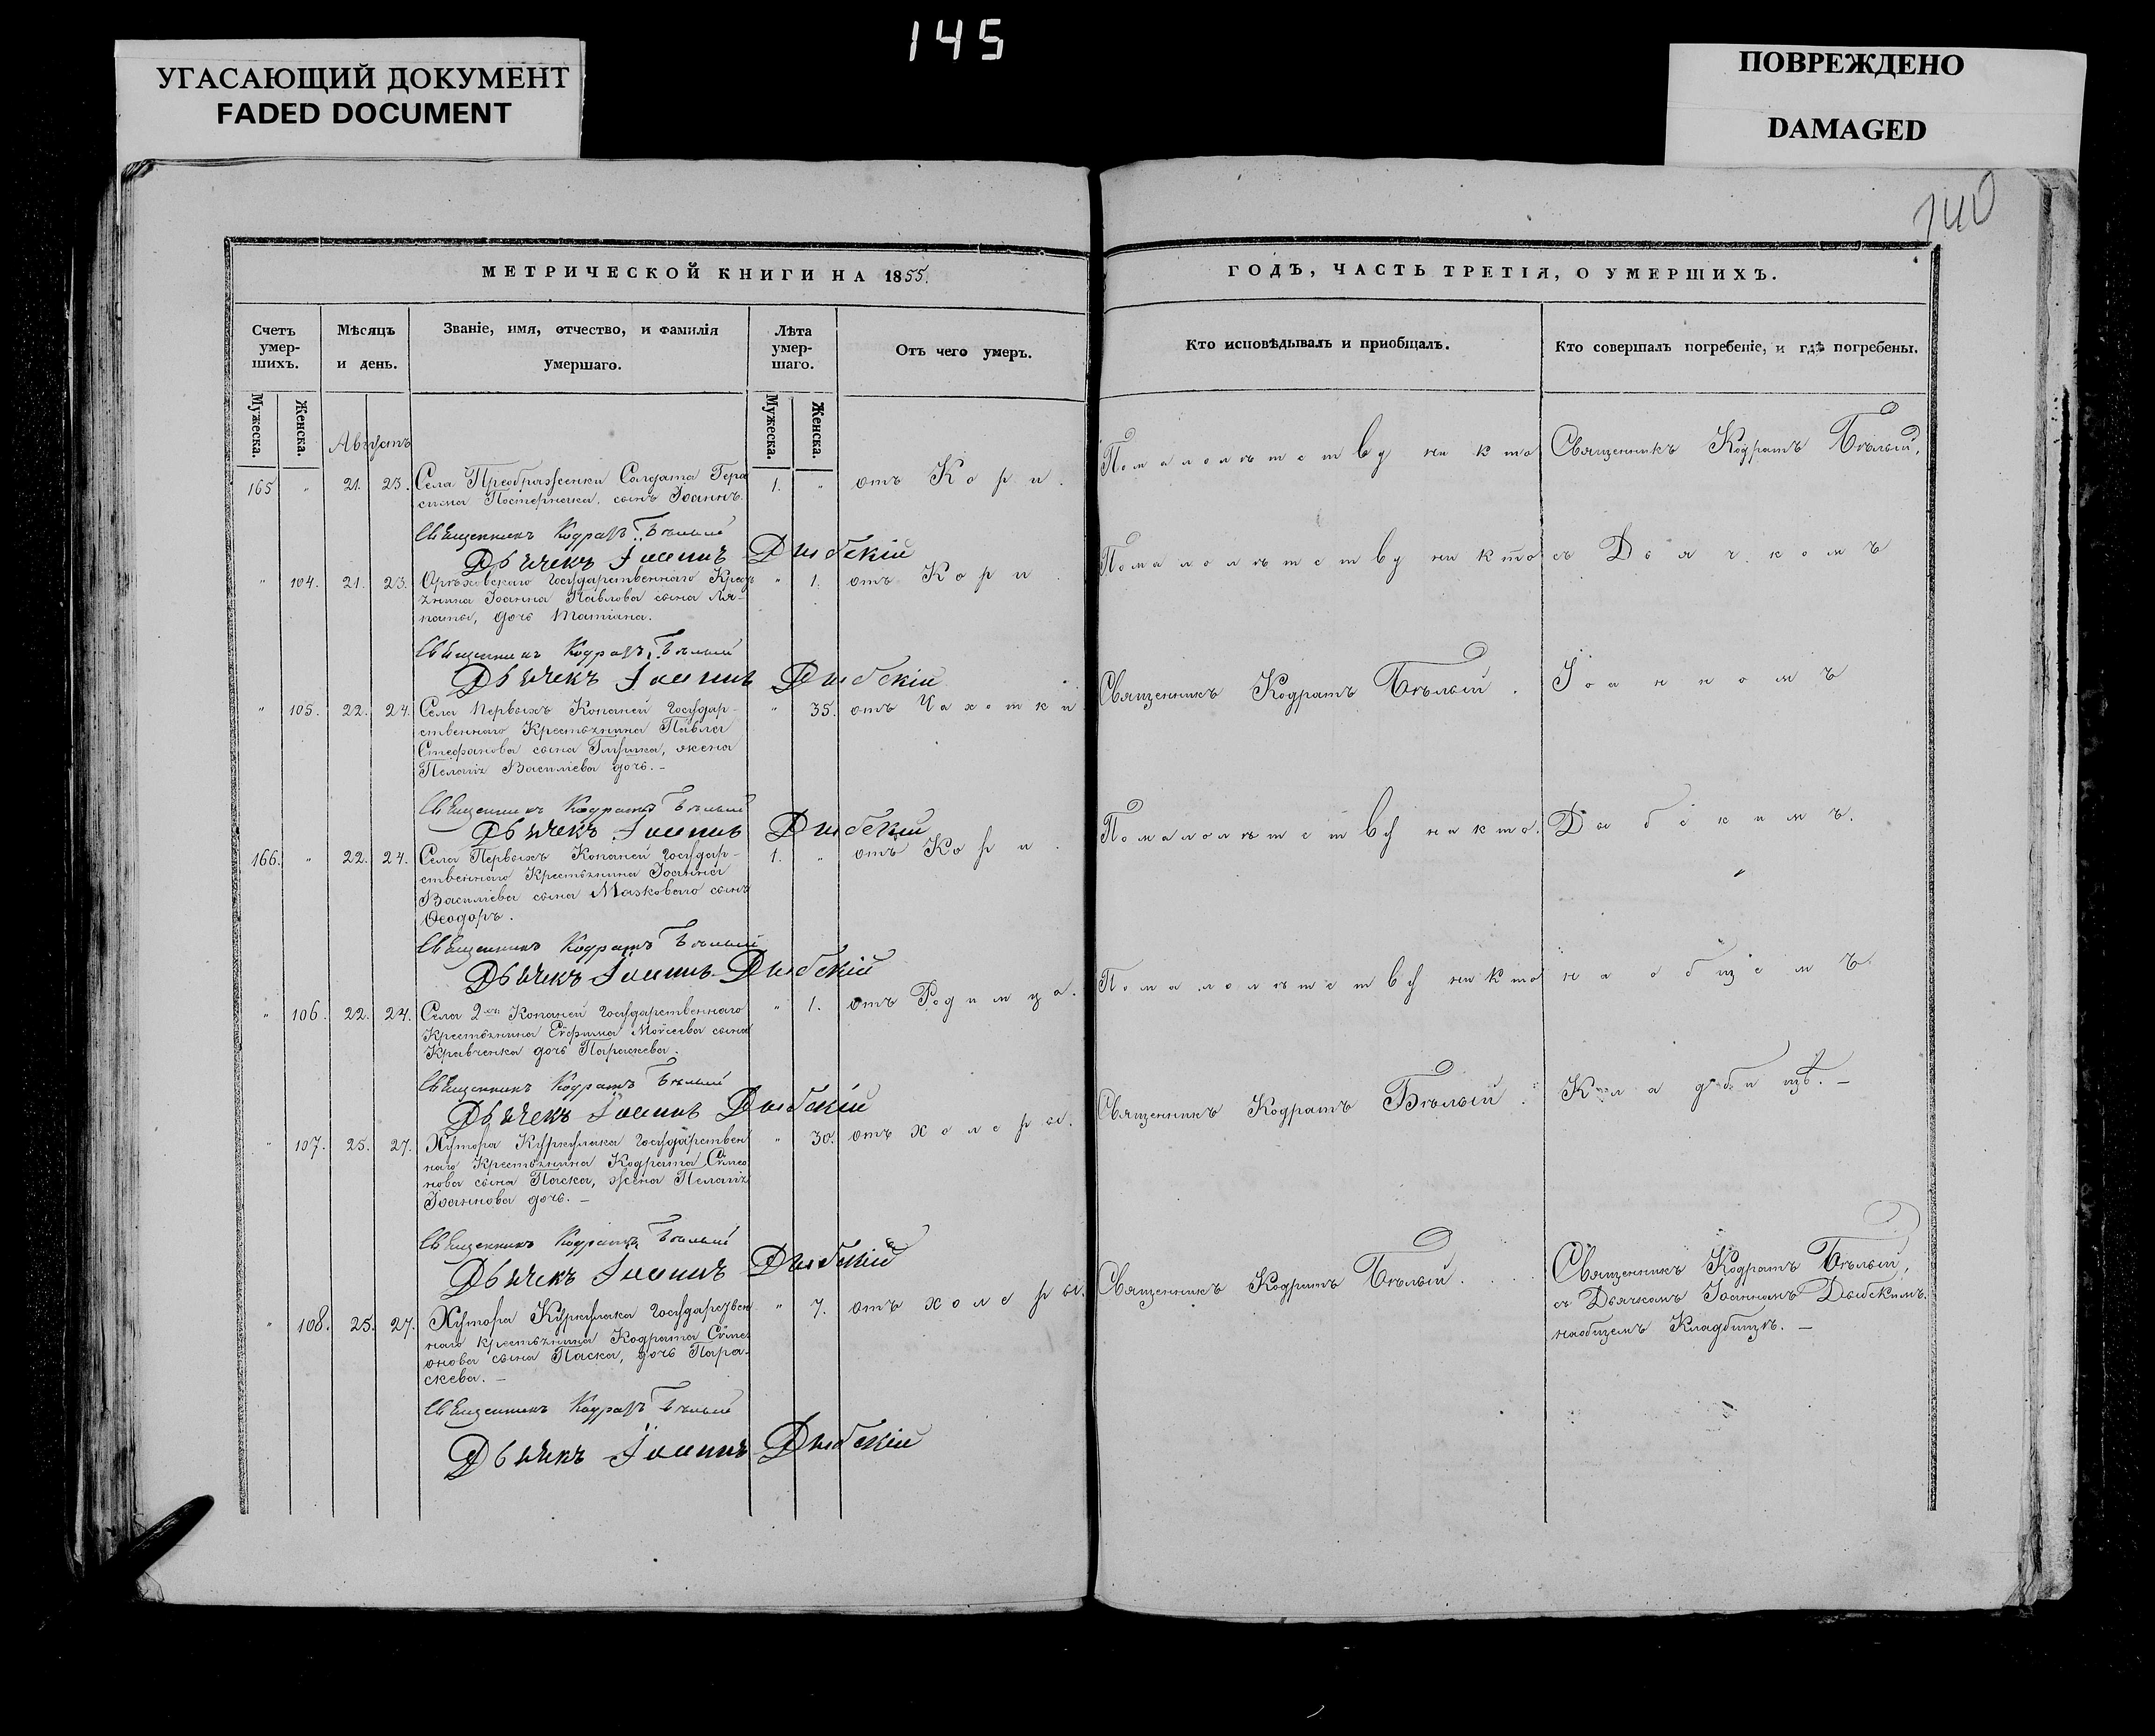 145
УГАСАЮЩИЙ ДОКУМЕНТ
FADED DOCUMENT
ПОВРЕЖДЕНО
DAMAGED
140
МЕТРИЧЕСКОЙ КНИГИ НА 1855.
Счетъ умер-шихъ.
Мѣсяцъ и день.
Званіе, имя, отчество, и фамилія умершаго.
Лѣта умер-шаго.
Отъ чего умеръ.
Мужеска.
Женска.
Мужеска.
Женска.
Августъ
165 " 21. 23. Села Преображенки Солдата Гера 1. " отъ Кори.
сима Пастернака, сынъ Іоаннъ.
Священникъ Кодратъ Бѣлый
Дьячекъ Іоаннъ Дыбскій
" 104. 21. 23. Орѣховскаго Государственнаго Кресть " 1. отъ Кори.
янина Іоанна Павлова сына Ля-
паты, дочь Татіана.
Священникъ Кодратъ Бѣлый
Дьячекъ Іоаннъ Дыбскій
" 105. 22. 24. Села Первыхъ Копаней Государ- " 35. отъ Чахотки
ственнаго Крестьянина Павла
Стефанова сына жена
Пелагія Василіева дочь. –
Священникъ Кодратъ Бѣлый
Дьячекъ Іоаннъ Дыбскій
166. " 22. 24. Села Первыхъ Копаней Государ- 1. " отъ Кори.
ственнаго Крестьянина Іоанна
Василіева сына Мазковаго сынъ
Ѳеодоръ.
Священникъ Кодратъ Бѣлый
Дьячекъ Іоаннъ Дыбскій
" 106. 22. 24. Села 2хъ Копаней Государственнаго " 1. отъ Родимца.
Крестьянина Евфима Мойсеева сына
Кравченка дочь Параскева.
Священникъ Кодратъ Бѣлый
Дьячекъ Іоаннъ Дыбскій
" 107. 25. 27. Хутора Куркулака Государствен " 30. отъ холеры.
наго Крестьянина Кодрата Сѵмео
нова сына Паска, жена Пелагія
Іоаннова дочь. –
Священникъ Кодратъ Бѣлый
Дьячекъ Іоаннъ Дыбскій
" 108. 25. 27. Хутора Куркулака Государствен " 7. отъ холеры.
наго крестьянина Кодрата Сѵме
онова сына Паска, дочь Пара-
скева. –
Священникъ Кодратъ Бѣлый
Дьячекъ Іоаннъ Дыбскій
ГОДЪ, ЧАСТЬ ТРЕТІЯ, О УМЕРШИХЪ.
Кто исповѣдывалъ и пріобщалъ.
Кто совершалъ погребеніе, и гдѣ погребены.
По малолѣтству никто
Священникъ Кодратъ Бѣлый,
По малолѣтству никто
съ Дьячкомъ
Священникъ Кодратъ Бѣлый.
Іоанномъ
По малолѣтству никто.
Дыбскимъ.
По малолѣтству никто
на общемъ
Священникъ Кодратъ Бѣлый.
Кладбищѣ. –
Священникъ Кодратъ Бѣлый.
Священникъ Кодратъ Бѣлый,
съ Дьячкомъ Іоанномъ Дыбскимъ.
на общемъ Кладбищѣ. –